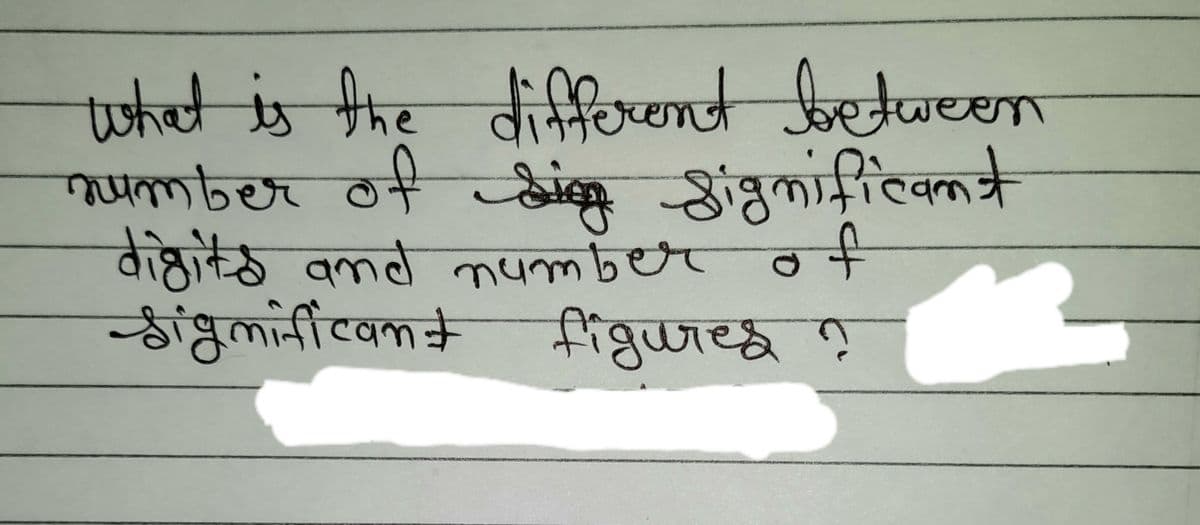 what is the different between
number of significant
digits and number of
significant figures ?